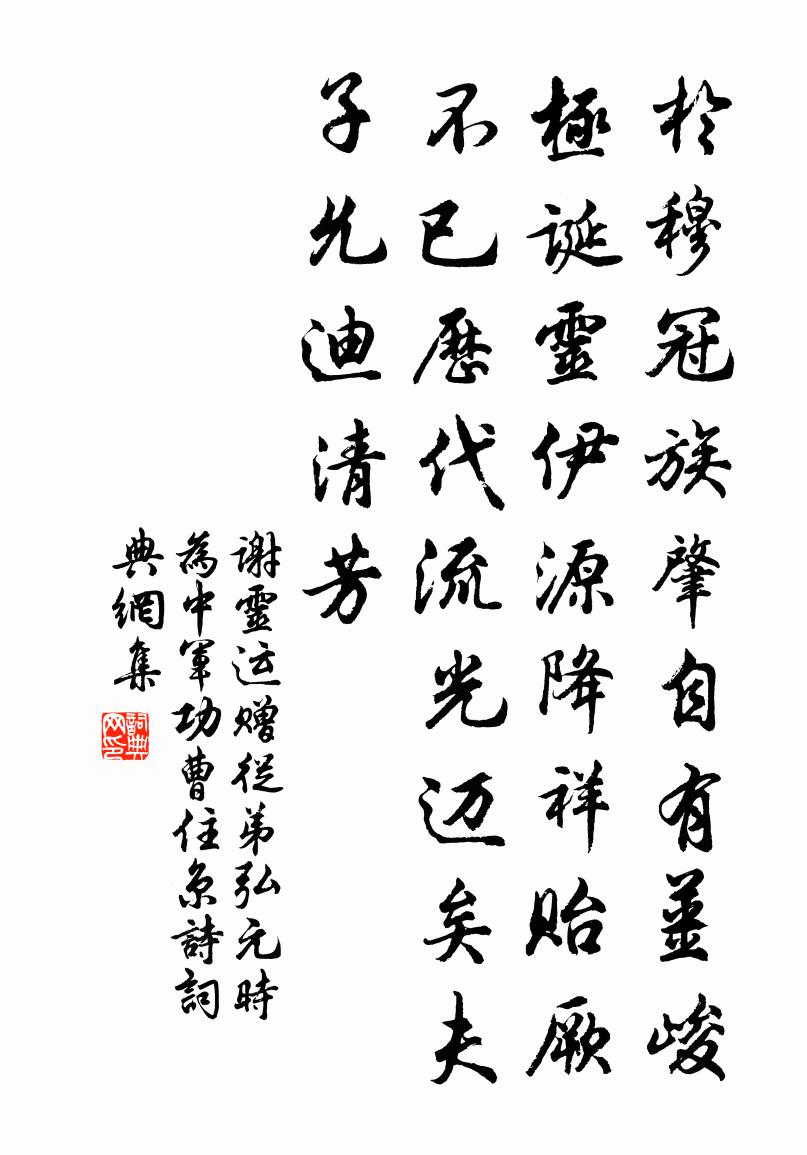 於穆冠族肇自有薑峻
極誕靈伊源降祥貽厥
不已歷代流光邁矣夫
子允迪清芳
謝靈运贈從弟弘元時
為中軍功曹住京詩詞
典網集
詞典网印